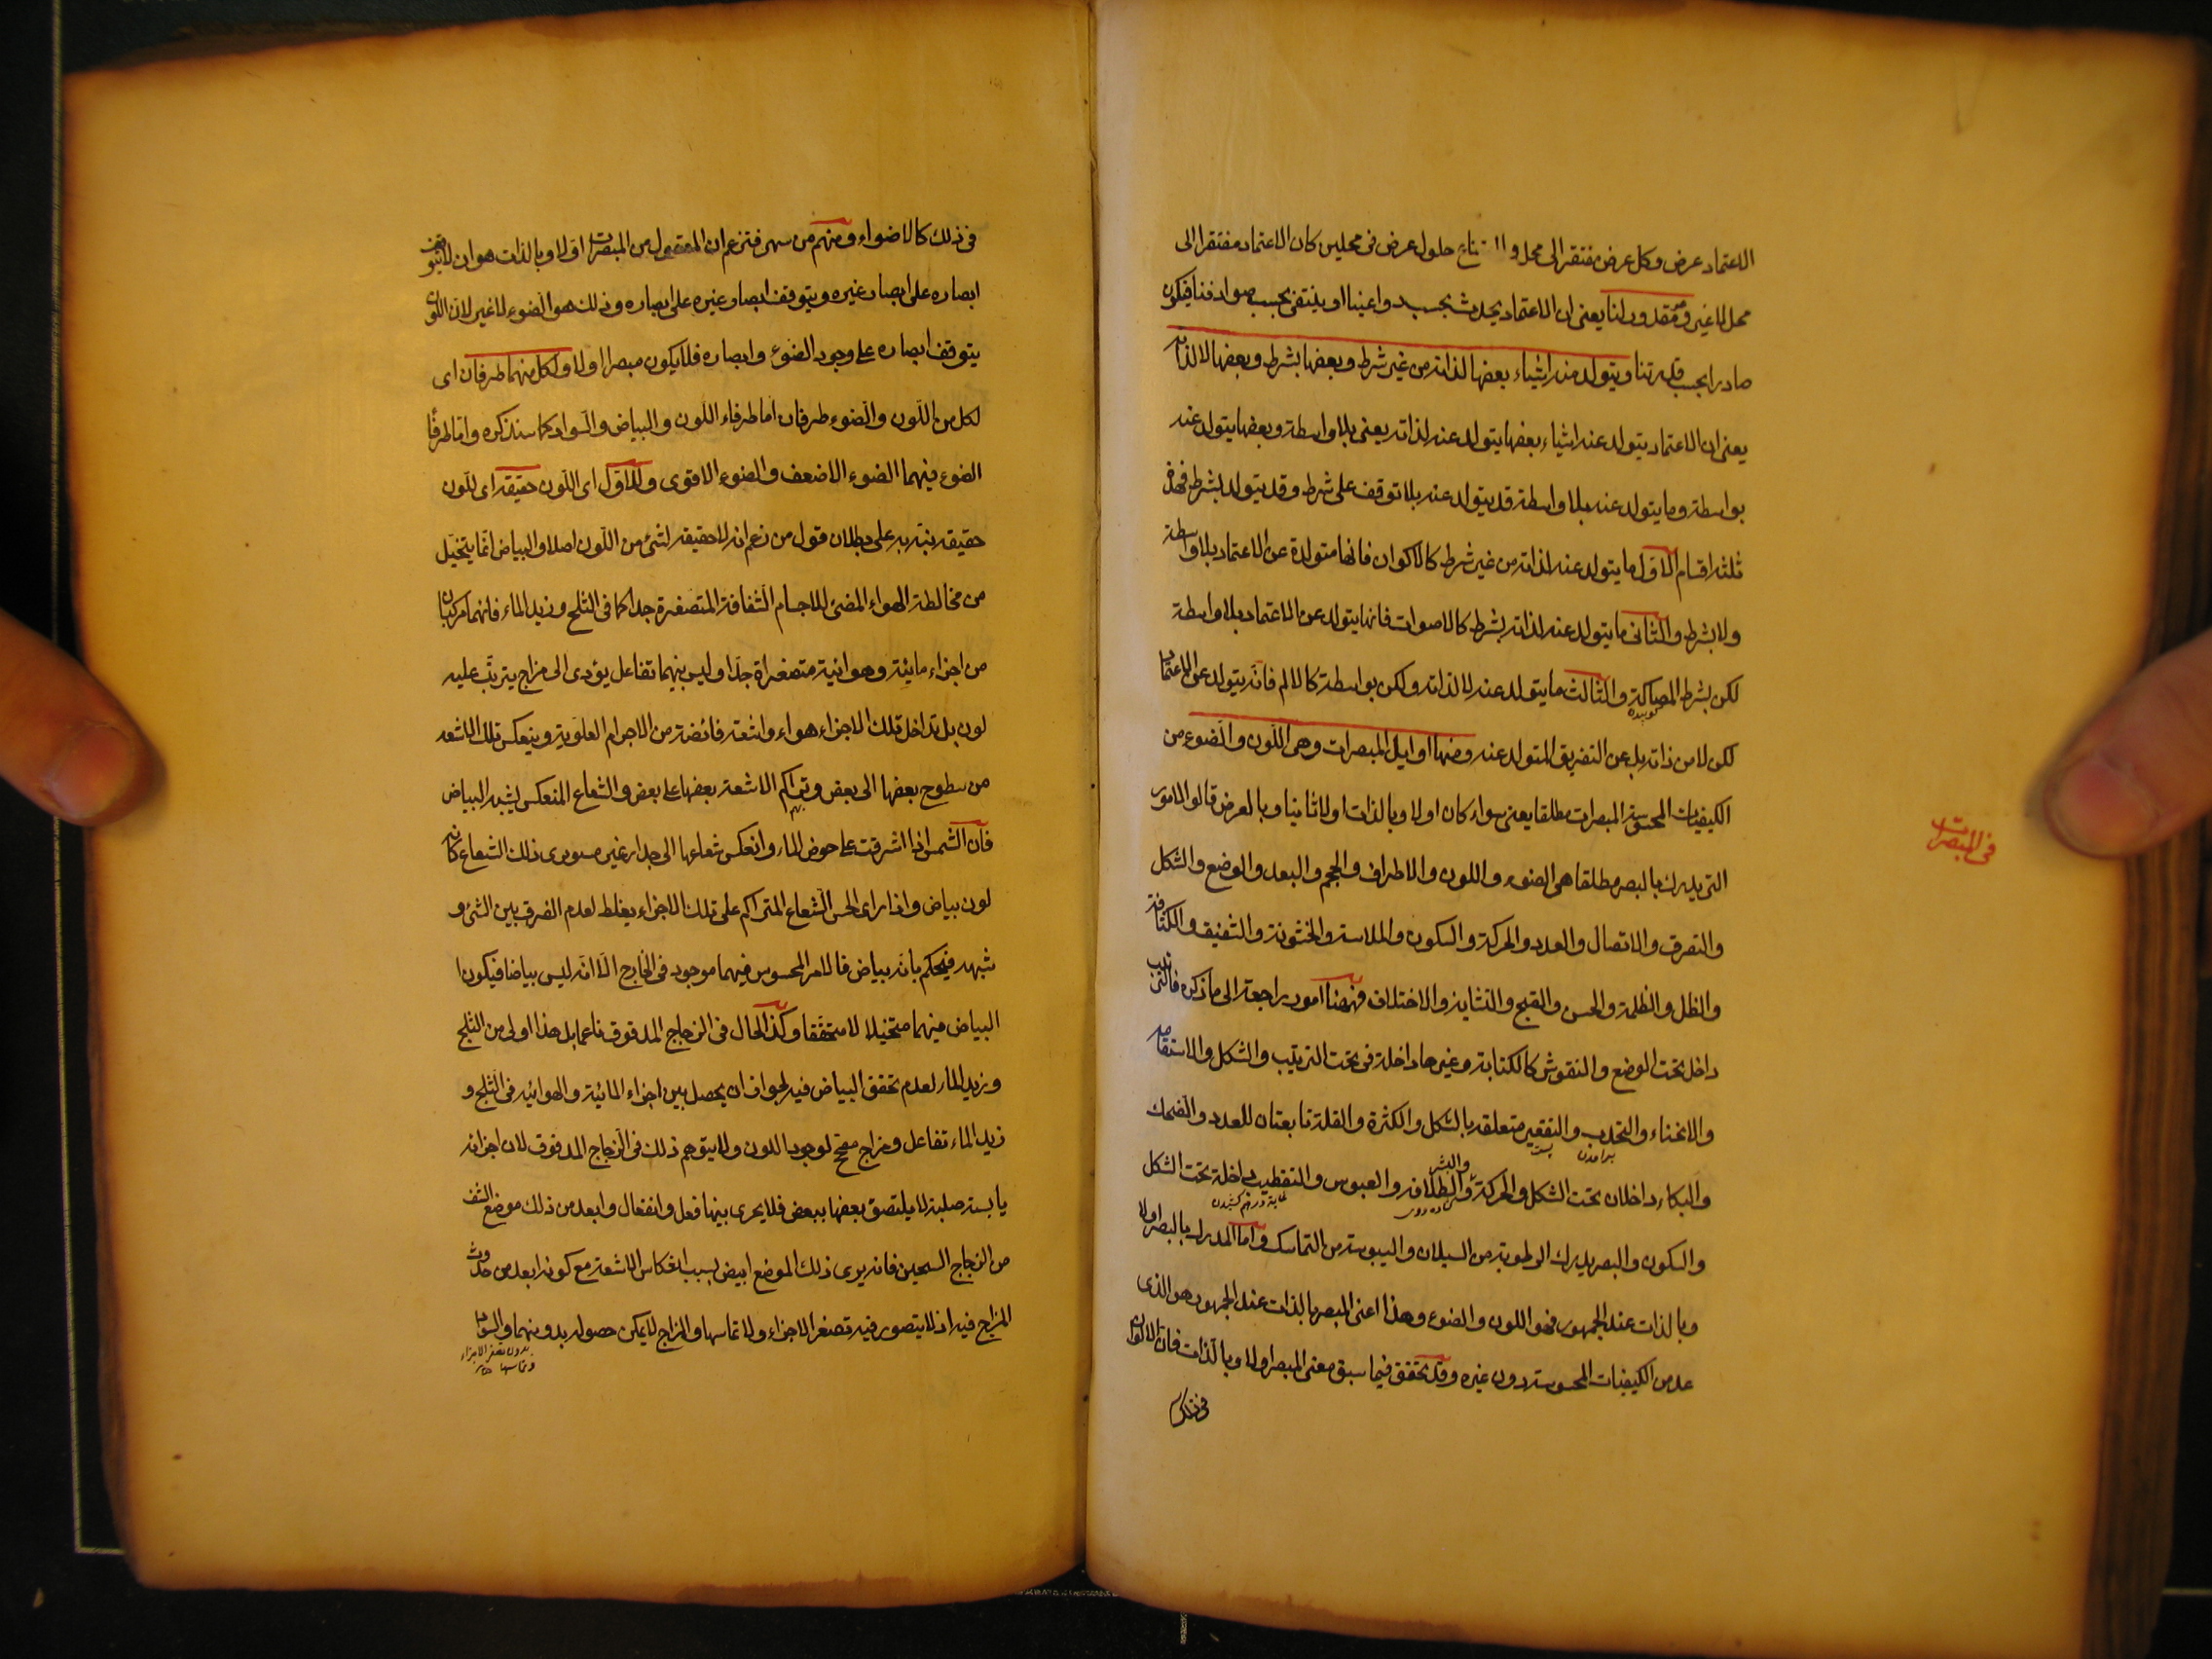 الاعتماد عرض وكل عرض مفتقر الى محل و تناع حلول عرض فى محلين كان الاعتماد مفتقرا الى
محل لا غير ومقدور لنا يعنى ان الاعتماد يحدث بحسب دواعينا او ينتفى بحسب صوارفنا فيكون
صادرا بحسب قدرتنا ويتولد منه اشياء بعضها لذاته من غير شرط وبعضها بشرط وبعضها لا لذاته
يعنى ان الاعتماد يتولد عنه اشياء بعضها يتولد عنه لذاته يعنى بلا واسطة وبعضها يتولد عنه
بواسطة وما يتولد عنه بلا واسطة قد يتولد عنه بلا توقف على شرط وقد يتولد بشرط فهذه
ثلثة اقسام الاول ما يتولد عنه لذاته من غير شرط كالاكوان فانها متولدة عن الاعتماد بلا واسطة
ولا بشرط والثانى ما يتولد عنه لذاته بشرط كالاصوات فانها يتولد عن الاعتماد بلا واسطة
لكن بشرط المصاكة والثالث ما يتولد عنه لا لذاته ولكن بواسطة كالالم فانه يتولد عن الاعتماد
كوبيده
لكن لا من ذاته بل عن التفريق المتولد عنه ومنها اوايل المبصرات وهى اللون والضوء من
الكيفيات المحسوسة المبصرات مطلقا يعنى سواء كان اولا وبالذات او لا ثانيا وبالعرض قالوا الامور
فى المبصرات
التى يدرك بالبصر مطلقا هى الضوء واللون والاطراف والحجم والبعد والوضع والشكل
والتفرق والاتصال والعدد والحركة والسكون والملاسة والخشونة والشفيف والكثافة
والظل والظلمة والحسن والقبح والتشابه والاختلاف فههنا امور راجعة الى ما ذكره فالترتيب
داخل تحت الوضع والنقوش كالكتابة وغيرها داخلة فى تحت الترتيب والشكل والاستقامة
والانحناء والتحدب والتقعير متعلقة بالشكل والكثرة والقلة تابعتان للعدد والضحك
برامدن
والبكاء داخلان تحت الشكل والحركة والبشر والطلاقة والعبوس والتقطيب داخلة تحت الشكل
كشاده روى
والسكون والبصر يدرك الرطوبة من السيلان واليبوسة من التماسك واما المدرك بالبصر اولا
وبالذات عند الجمهور فهو اللون والضوء وهذا اعنى المبصر بالذات عند الجمهور هو الذى
عد من الكيفيات المحسوسة دون غيره وقد تحقق فيما سبق معنى المبصر اولا وبالذات فان الالوان
فى ذلك
فى ذلك كالاضواء ومنهم من زعم ان المعقول من المبصرات اولا وبالذات هو ان لا يتوقف
ابصاره على ابصار غيره ويتوقف ابصار غيره على ابصاره وذلك هو الضوء لا غير لان اللون
يتوقف ابصاره على وجود الضوء وابصاره فلا يكون مبصرا اولا ولكل منهما طرفان اى
لكل من اللون والضوء طرفان اما طرفاء اللون والبياض والسواد كما سنذكره واما طرفا
الضوء فيهما الضوء الاضعف والضوء الاقوى وللاول اى اللون حقيقة اى للون
حقيقة نبه به على بطلان قول من زعم انه لا حقيقة لشئ من اللون اصلا والبياض انما يتخيل
من مخالطة الهواء المضئ للاجسام الشفافة المتصغرة جدا كما فى الثلج وزبد الماء فانهما مركبان
من اجزاء مائية وهوائية متصغرة جدا وليس بينهما تفاعل يؤدى الى مزاج يترتب عليه
لون بل تداخل تلك الاجزاء هواء واشعة فائضة من الاجرام العلوية وينعكس تلك الاشعة
من سطوح بعضها الى بعض وتراكم الاشعة بعضها على بعض والشعاع المنعكس يشبه البياض
فان الشمس اذا اشرقت على حوض الماء وانعكس شعاعها الى جدار غير مستوى يرى ذلك الشعاع كانه
لون بياض واذا راى الحس الشعاع المتراكم على تلك الاجزاء يغلط لعدم الفرق بين الشئ و
شبهه فيحكم بانه بياض فالامر المحسوس فيهما موجود فى الخارج الا انه ليس بياضا فيكون ا
البياض فيهما متخيلا لا متحققا وكذا الحال فى الزجاج المدقوق ناعما بل هذا اولى من الثلج
وزبد الماء لعدم تحقق البياض فيه لجواز ان يحصل بين اجزاء المائية والهوائية فى الثلج و
زبد الماء تفاعل ومزاج مصحح لوجود اللون ولا يتوهم ذلك فى الزجاج المدقوق لان اجزائه
يابسة صلبة لا يلتصق بعضها ببعض فلا يجرى بينها فعل وانفعال وابعد من ذلك موضع الشق
من الزجاج السحين فانه يرى ذلك الموضع ابيض بسبب انعكاس الاشعة مع كونه ابعد من حدوث
المزاج فيه اذ لا يتصور فيه تصغر الاجزاء ولا تماسها والمزاج لا يمكن حصوله بدونهما والسواد
بدون تصغر الاجزاء
وتماسها